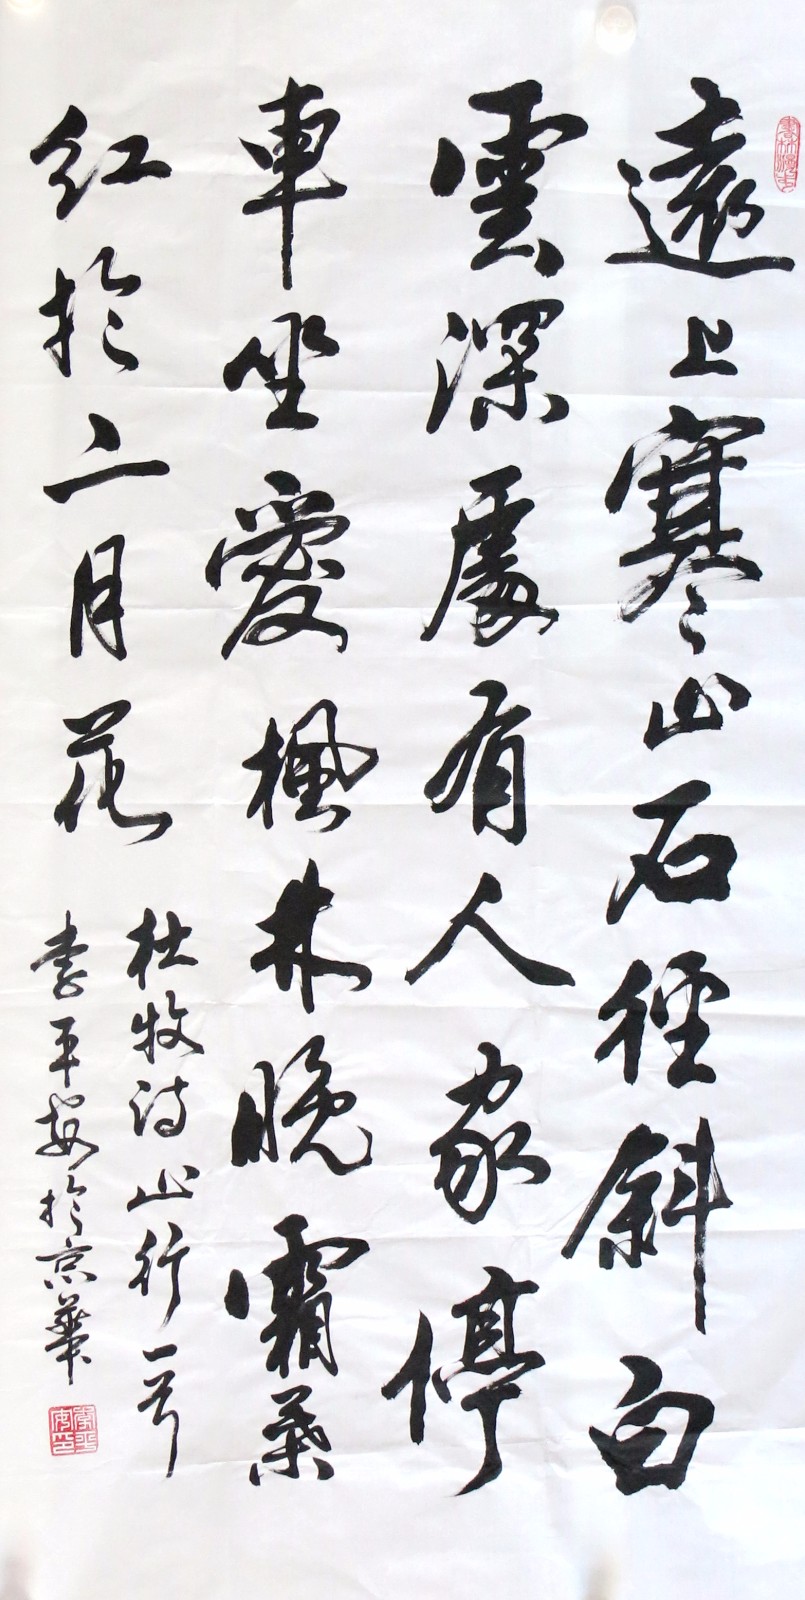 遠上寒山石徑斜白
雲深處有人家停
車坐愛楓林晚霜葉
紅於二月花
杜牧诗山行一首
李平安於京華